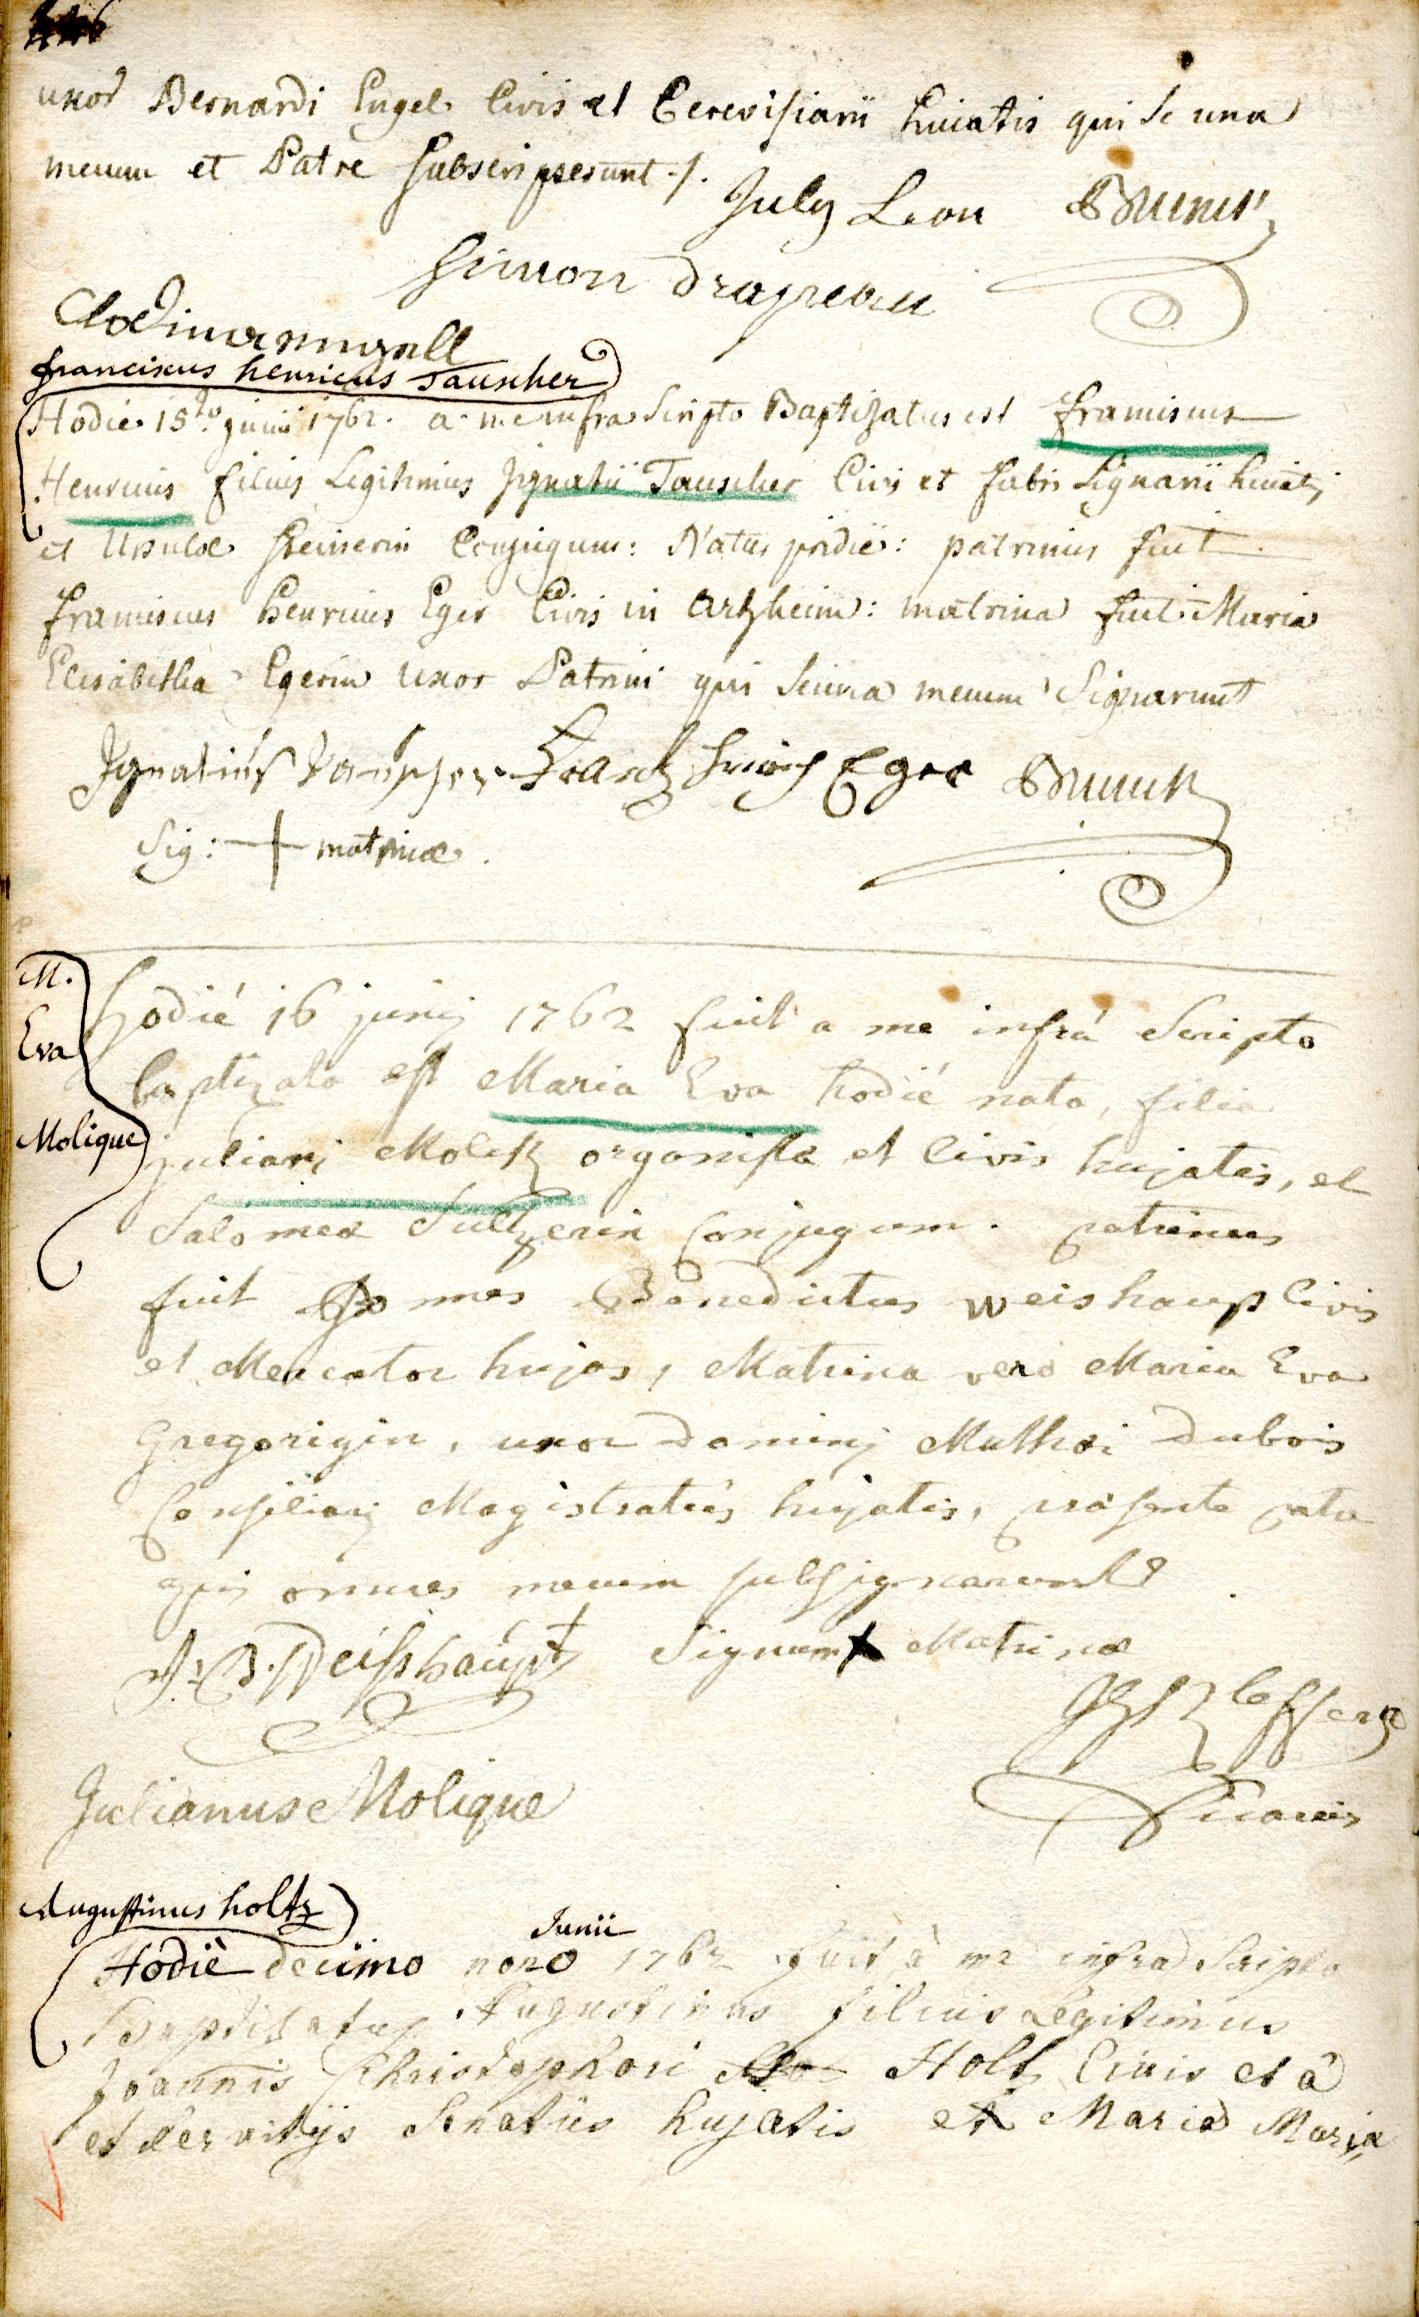 446
uxor Bernardi Engel Civis et Cerevisiarii huiatis qui se una
mecum et Patre subscripserunt ./.
July Leon Brunck
Simon drapeau
franciscus henricus Tauscher
Hodie 15to junii 1762. a me infra scripto Baptizatus est franciscus
Henricus filius Legitimus Ignatii Tauscher Civis et fabri Lignarii huiatis
et Ursulae Conjugum: Natus pridie: patrinus fuit
franciscus Henricus Eger Civis in Artzheim: matrina fuit Maria
Elisabetha Egerin uxor Patrini qui se una mecum Signarunt
Ignatius Tauscher Frantz Henrich Eger Brunck
Sig: + matrinae.
M.
Eva
Molique
hodié 16 junij 1762 fuit a me infrá Scripto
baptizata est Maria Eva hodié nata, filia
juliani Molik organistae et Civis hujatis, et
Salomeae Sultzerin Conjugum. patrinus
fuit Joannes Benedictus Weishaupt Civis
et Mercator hujas, Matrina vero Maria Eva
Gregorigin, uxor Dominj Mathei Dubois
Consiliarij Magistratús hujatis, praesente patre
qui omnes mecum subsignarunt
J: B. Weisshaupt Signum + Matrinae
Julianus Molique
Vicarius
Augustinus holtz
Hodiè decimo nono Junii 1762 fuit à me infra Scripto
Baptisatus Augustinus filius Legitimus
Joannis Christophori Holtz Civis et à
et servitijs Senatus hujatis et Maria Maria